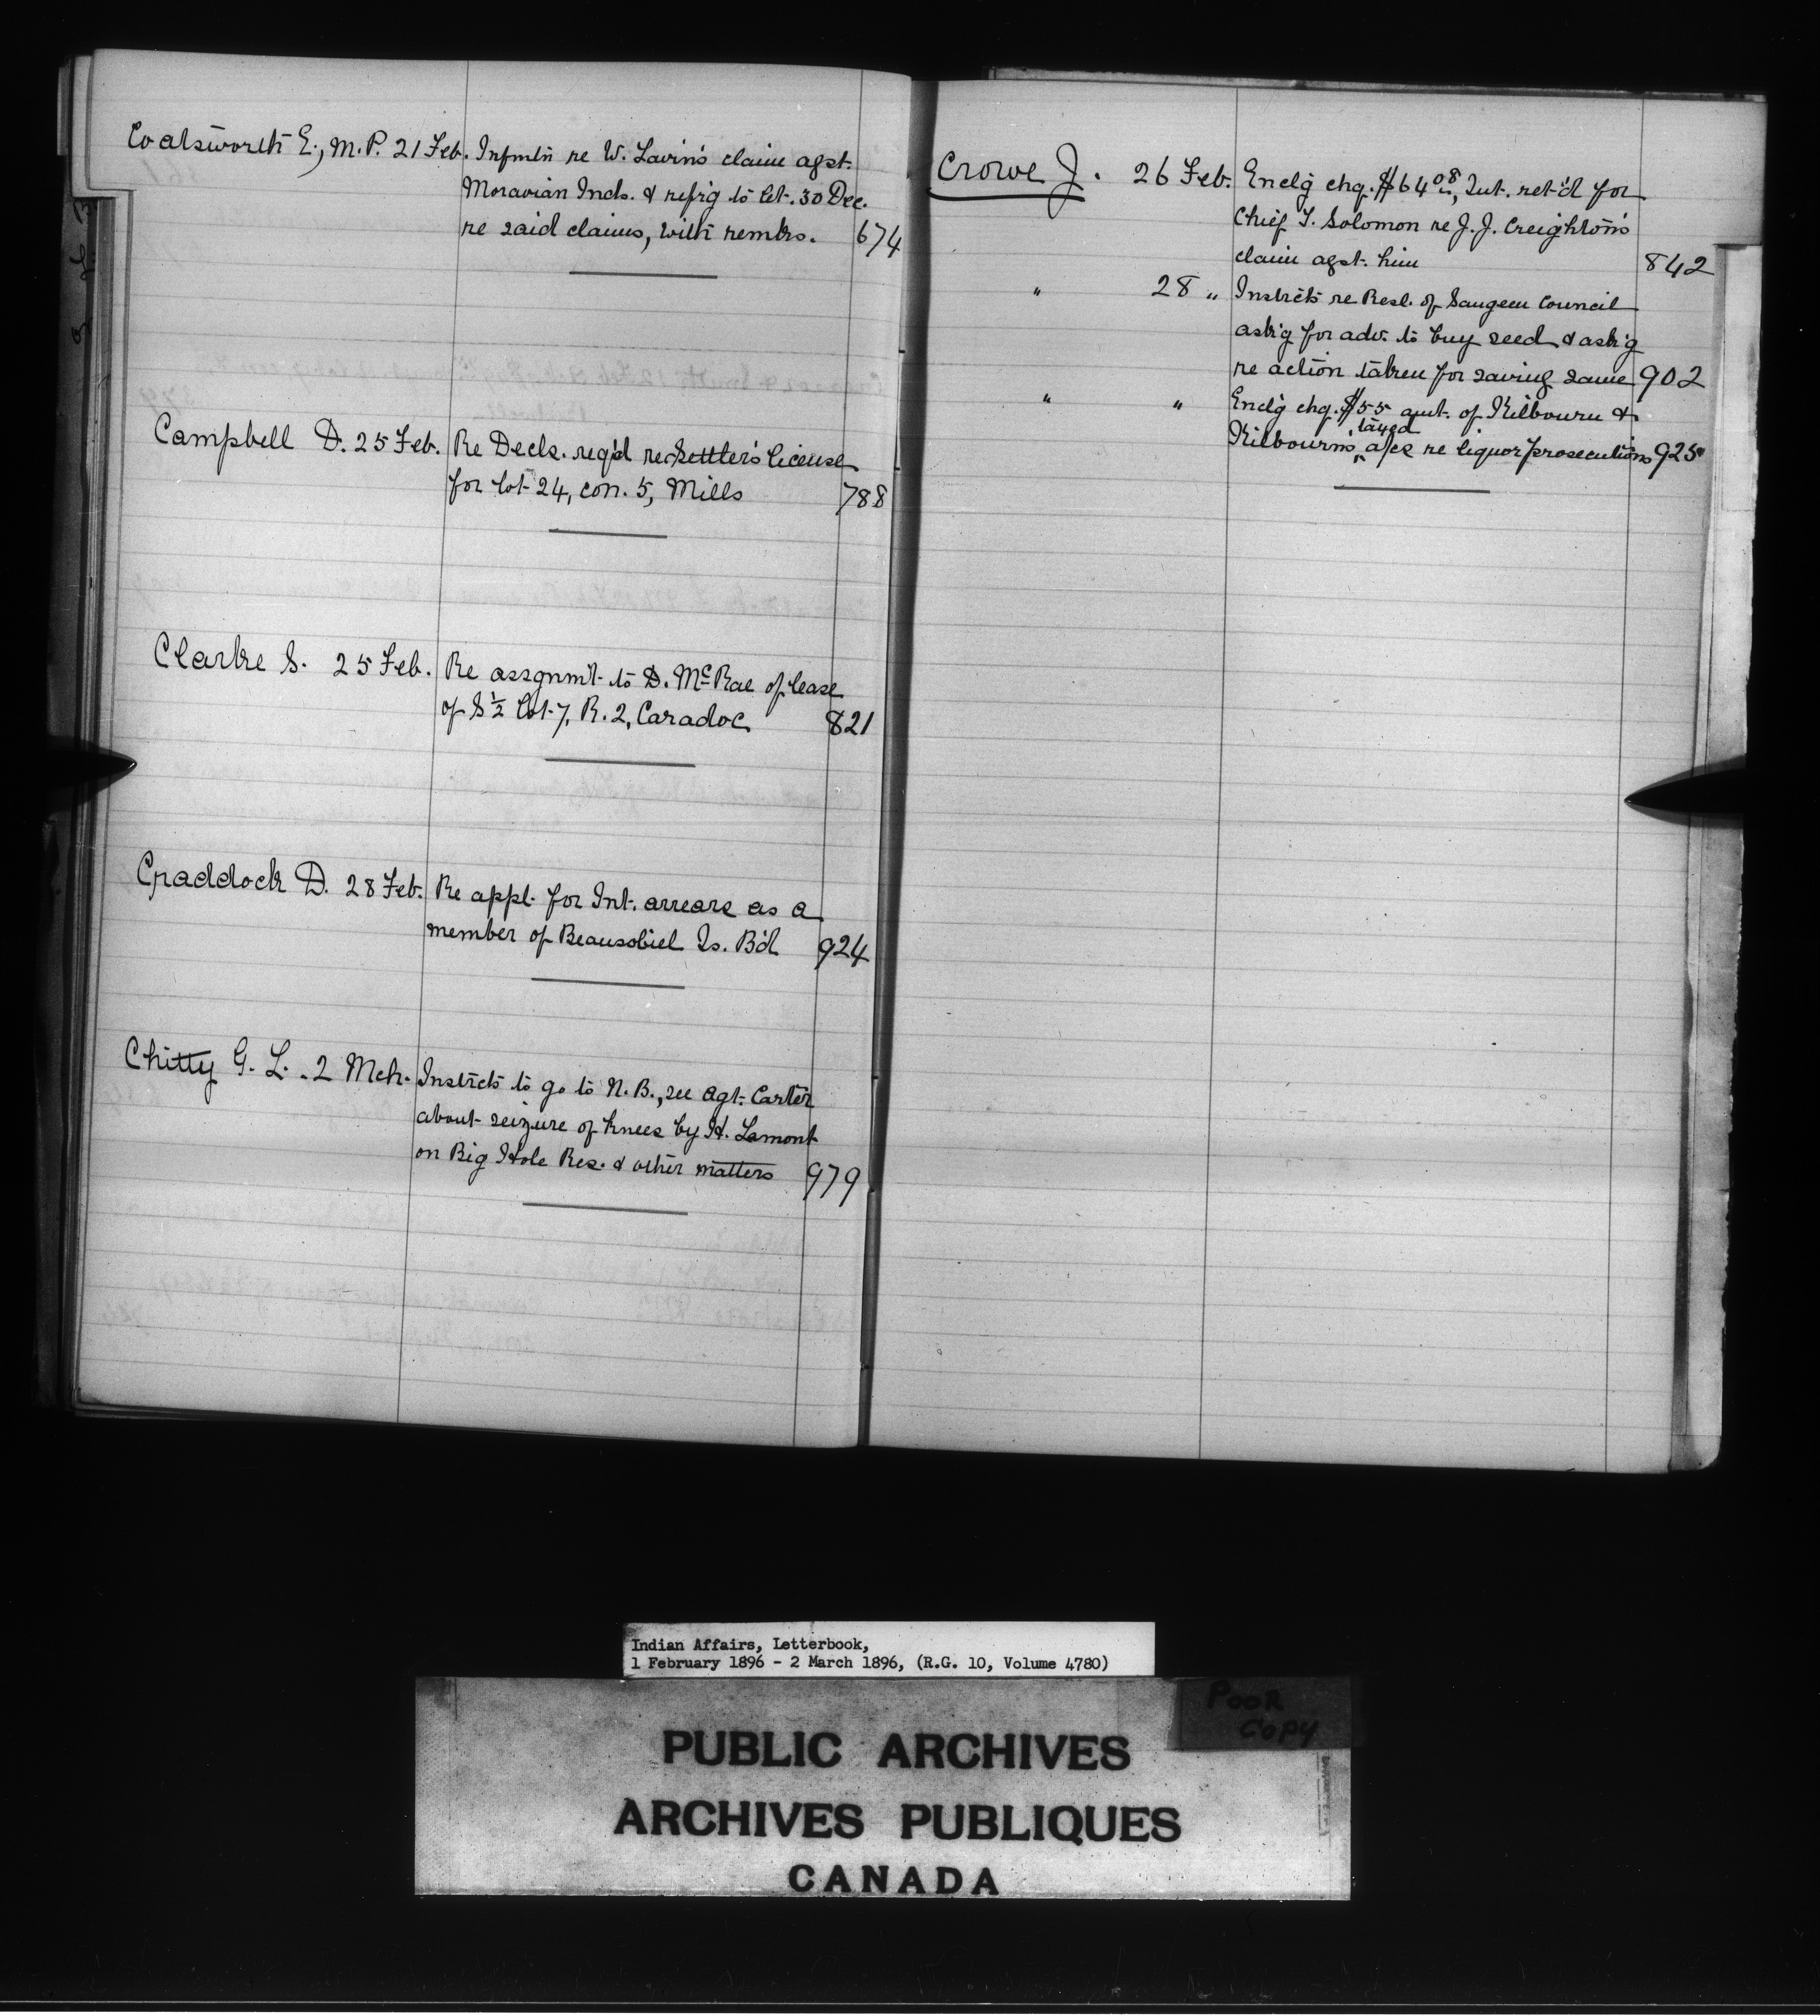 Coatsworth E., M.P. 21 Feb. Infmtn re W. Lavin's claim agst.
Moravian Inds. & refrg to let. 30 Dec.
re said claims, with remks. 674
Campbell D. 25 Feb. Re Decls. reqd re Settler's license
for lot 24, con. 5, Mills 788
Clarke S. 25 Feb. Re assgnmt to D. McRae of lease
of S½ lot 7, R. 2, Caradoc 821
Craddock D. 28 Feb. Re appl. for Int. arrears as a
member of Beausoliel Is. Bd 924
Chitty G. L. 2 Mch. Instrcts to go to N. B., see Agt. Carter
about seizure of knees by H. Lamont
on Big Hole Res. & other matters 979
Crowe J. 26 Feb. Enclg chq. $64 08, Int. ret'd for
Chief T. Solomon re J. J. Creighton's
claim agst. him 842
" 28 " Instrcts re Resl. of Saugeen Council
ask'g for adv. to buy seed & ask'g
re action taken for saving same 902
" " Enclg chq. $55 amt. of Kilbourn &
Kilbourn's taxed a/cs re liquor prosecutions 925
Indian Affairs, Letterbook,
1 February 1896 - 2 March 1896, (R.G. 10, Volume 4780)
POOR
COPY
PUBLIC ARCHIVES
ARCHIVES PUBLIQUES
CANADA